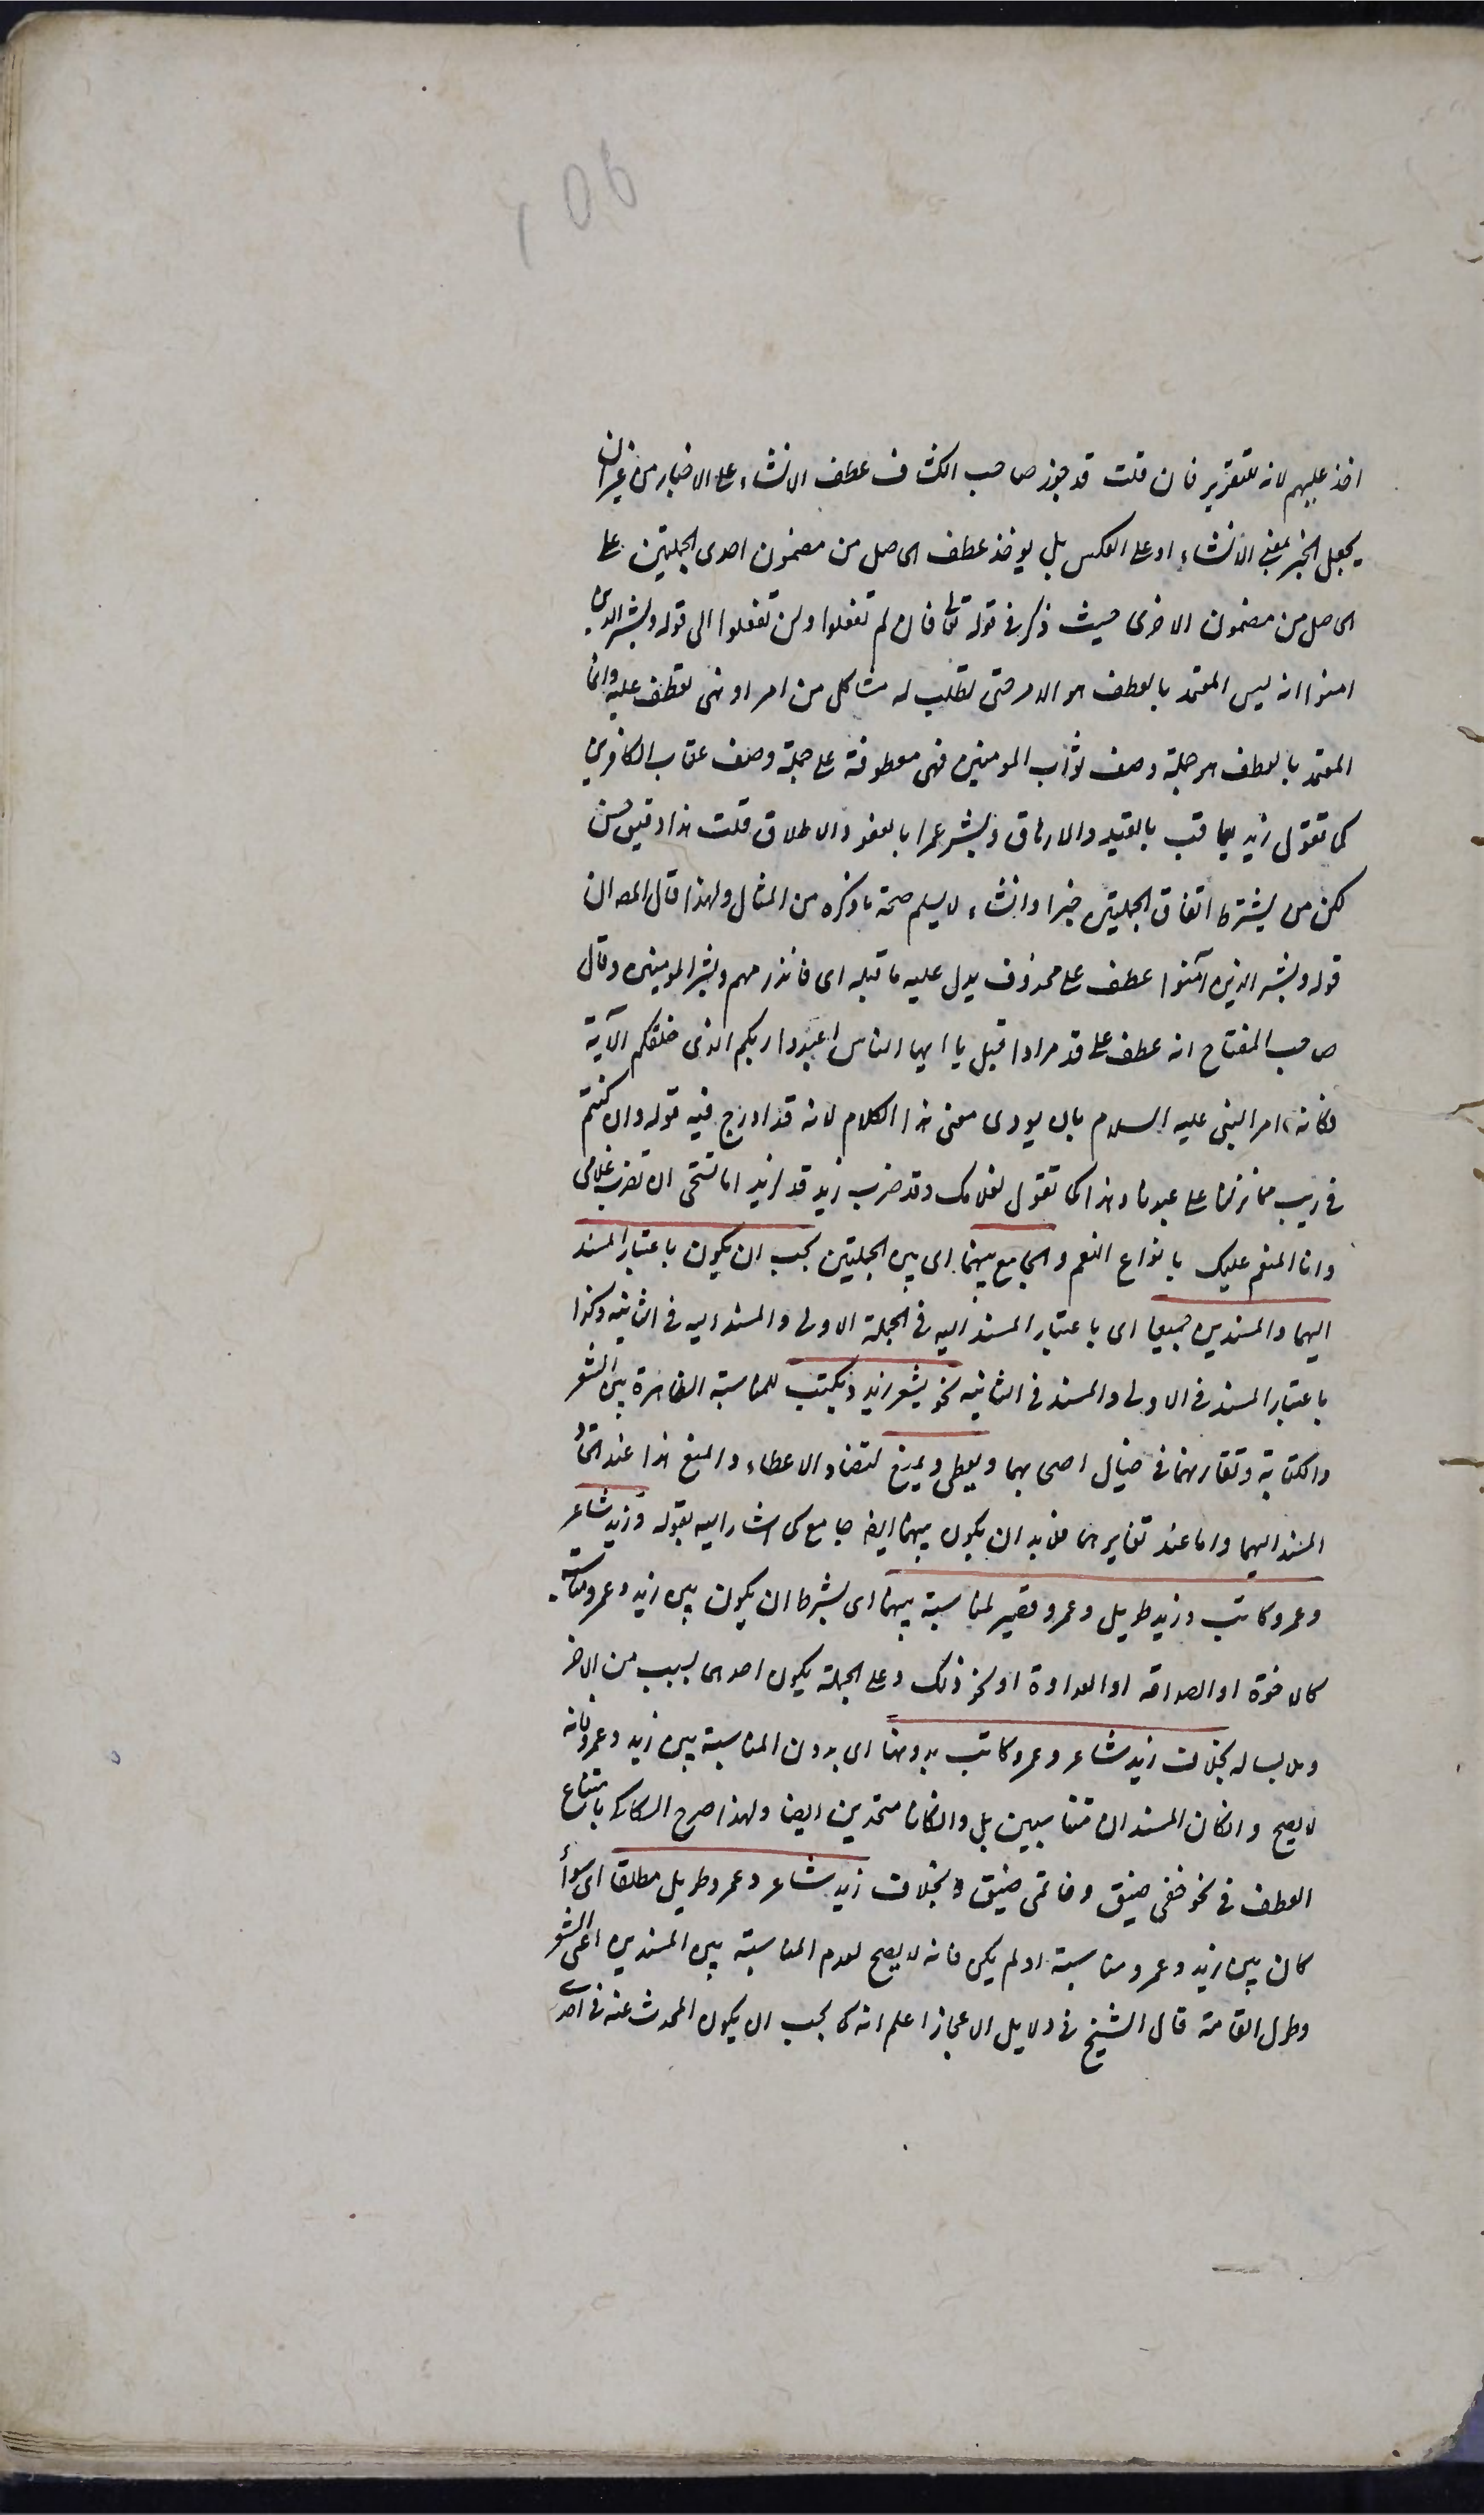 اخذ عليهم لانه للتقرير فان قلت قد جوز صاحب الكشاف عطف الانشاء على الاخبار من غير ان
يجعل الخبر بمعنى الانشاء او على العكس بل يوخذ عطف الحاصل من مضمون احدى الجملتين على
الحاصل من مضمون الاخرى حيث ذكر في قوله تعالى فان لم تفعلوا ولن تفعلوا الى قوله وبشر الذين
امنوا انه ليس المعتمد بالعطف هو الامر حتى تطلب له مشاكل من امر او نهى يعطف عليه وانما
المعتمد بالعطف هو جملة وصف ثواب المومنين فهى معطوفة على جملة وصف عقاب الكافرين
كما تقول زيد يعاقب بالقيد والارهاق وبشر عمرا بالعفو والاطلاق قلت هذا دقيق حسن
لكن من يشترط اتفاق الجملتين خبرا وانشاء لا يسلم صحة ما ذكره من المثال ولهذا قال المصـ ان
قوله وبشر الذين آمنوا عطف على محذوف يدل عليه ما قبله اى فانذرهم وبشر المومنين وقال
صاحب المفتاح انه عطف على قد مرادا قبل يا ايها الناس اعبدوا ربكم الذى خلقكم الآية
فكانه امر النبى عليه السلام بان يودى معنى هذا الكلام لانه قد ادرج فيه قوله وان كنتم
في ريب مما نزلنا على عبدنا وهذا كما تقول لغلامك وقد ضرب زيد قل لزيد اما تستحى ان تضرب غلامى
وانا المنعم عليك بانواع النعم والجامع بينهما اى بين الجملتين يجب ان يكون باعتبار المسند
اليهما والمسندين جميعا اى باعتبار المسند اليه في الجملة الاولى والمسند اليه في الثانية وكذا
باعتبار المسند في الاولى والمسند في الثانية نحو يشعر زيد ويكتب للمناسبة الظاهرة بين الشعر
والكتابة وتقارنهما في خيال اصحابهما ويعطى ويمنع لتضاد الاعطاء والمنع هذا عند اتحاد
المسند اليهما واما عند تغايرهما فلابد ان يكون بينهما ايضا جامع كما اشار اليه بقوله وزيد شاعر
وعمرو كاتب وزيد طويل وعمرو قصير لمناسبة بينهما اى بشرط ان يكون بين زيد وعمرو مناسبة
كالاخوة او الصداقة او العداوة او نحو ذلك وعلى الجملة يكون احدهما بسبب من الاخر
وملابسا له بخلاف زيد شاعر وعمرو كاتب بدونها اى بدون المناسبة بين زيد وعمرو فانه
لا يصح وان كان المسندان متناسبين بل وان كانا متحدين ايضا ولهذا صرح السكاكى بامتناع
العطف في نحو خفى ضيق وخاتمى ضيق وبخلاف زيد شاعر وعمرو طويل مطلقا اى سواء
كان بين زيد وعمرو مناسبة او لم يكن فانه لا يصح لعدم المناسبة بين المسندين اعنى الشعر
وطول القامة قال الشيخ في دلايل الاعجاز اعلم انه كما يجب ان يكون المحدث عنه في احدى